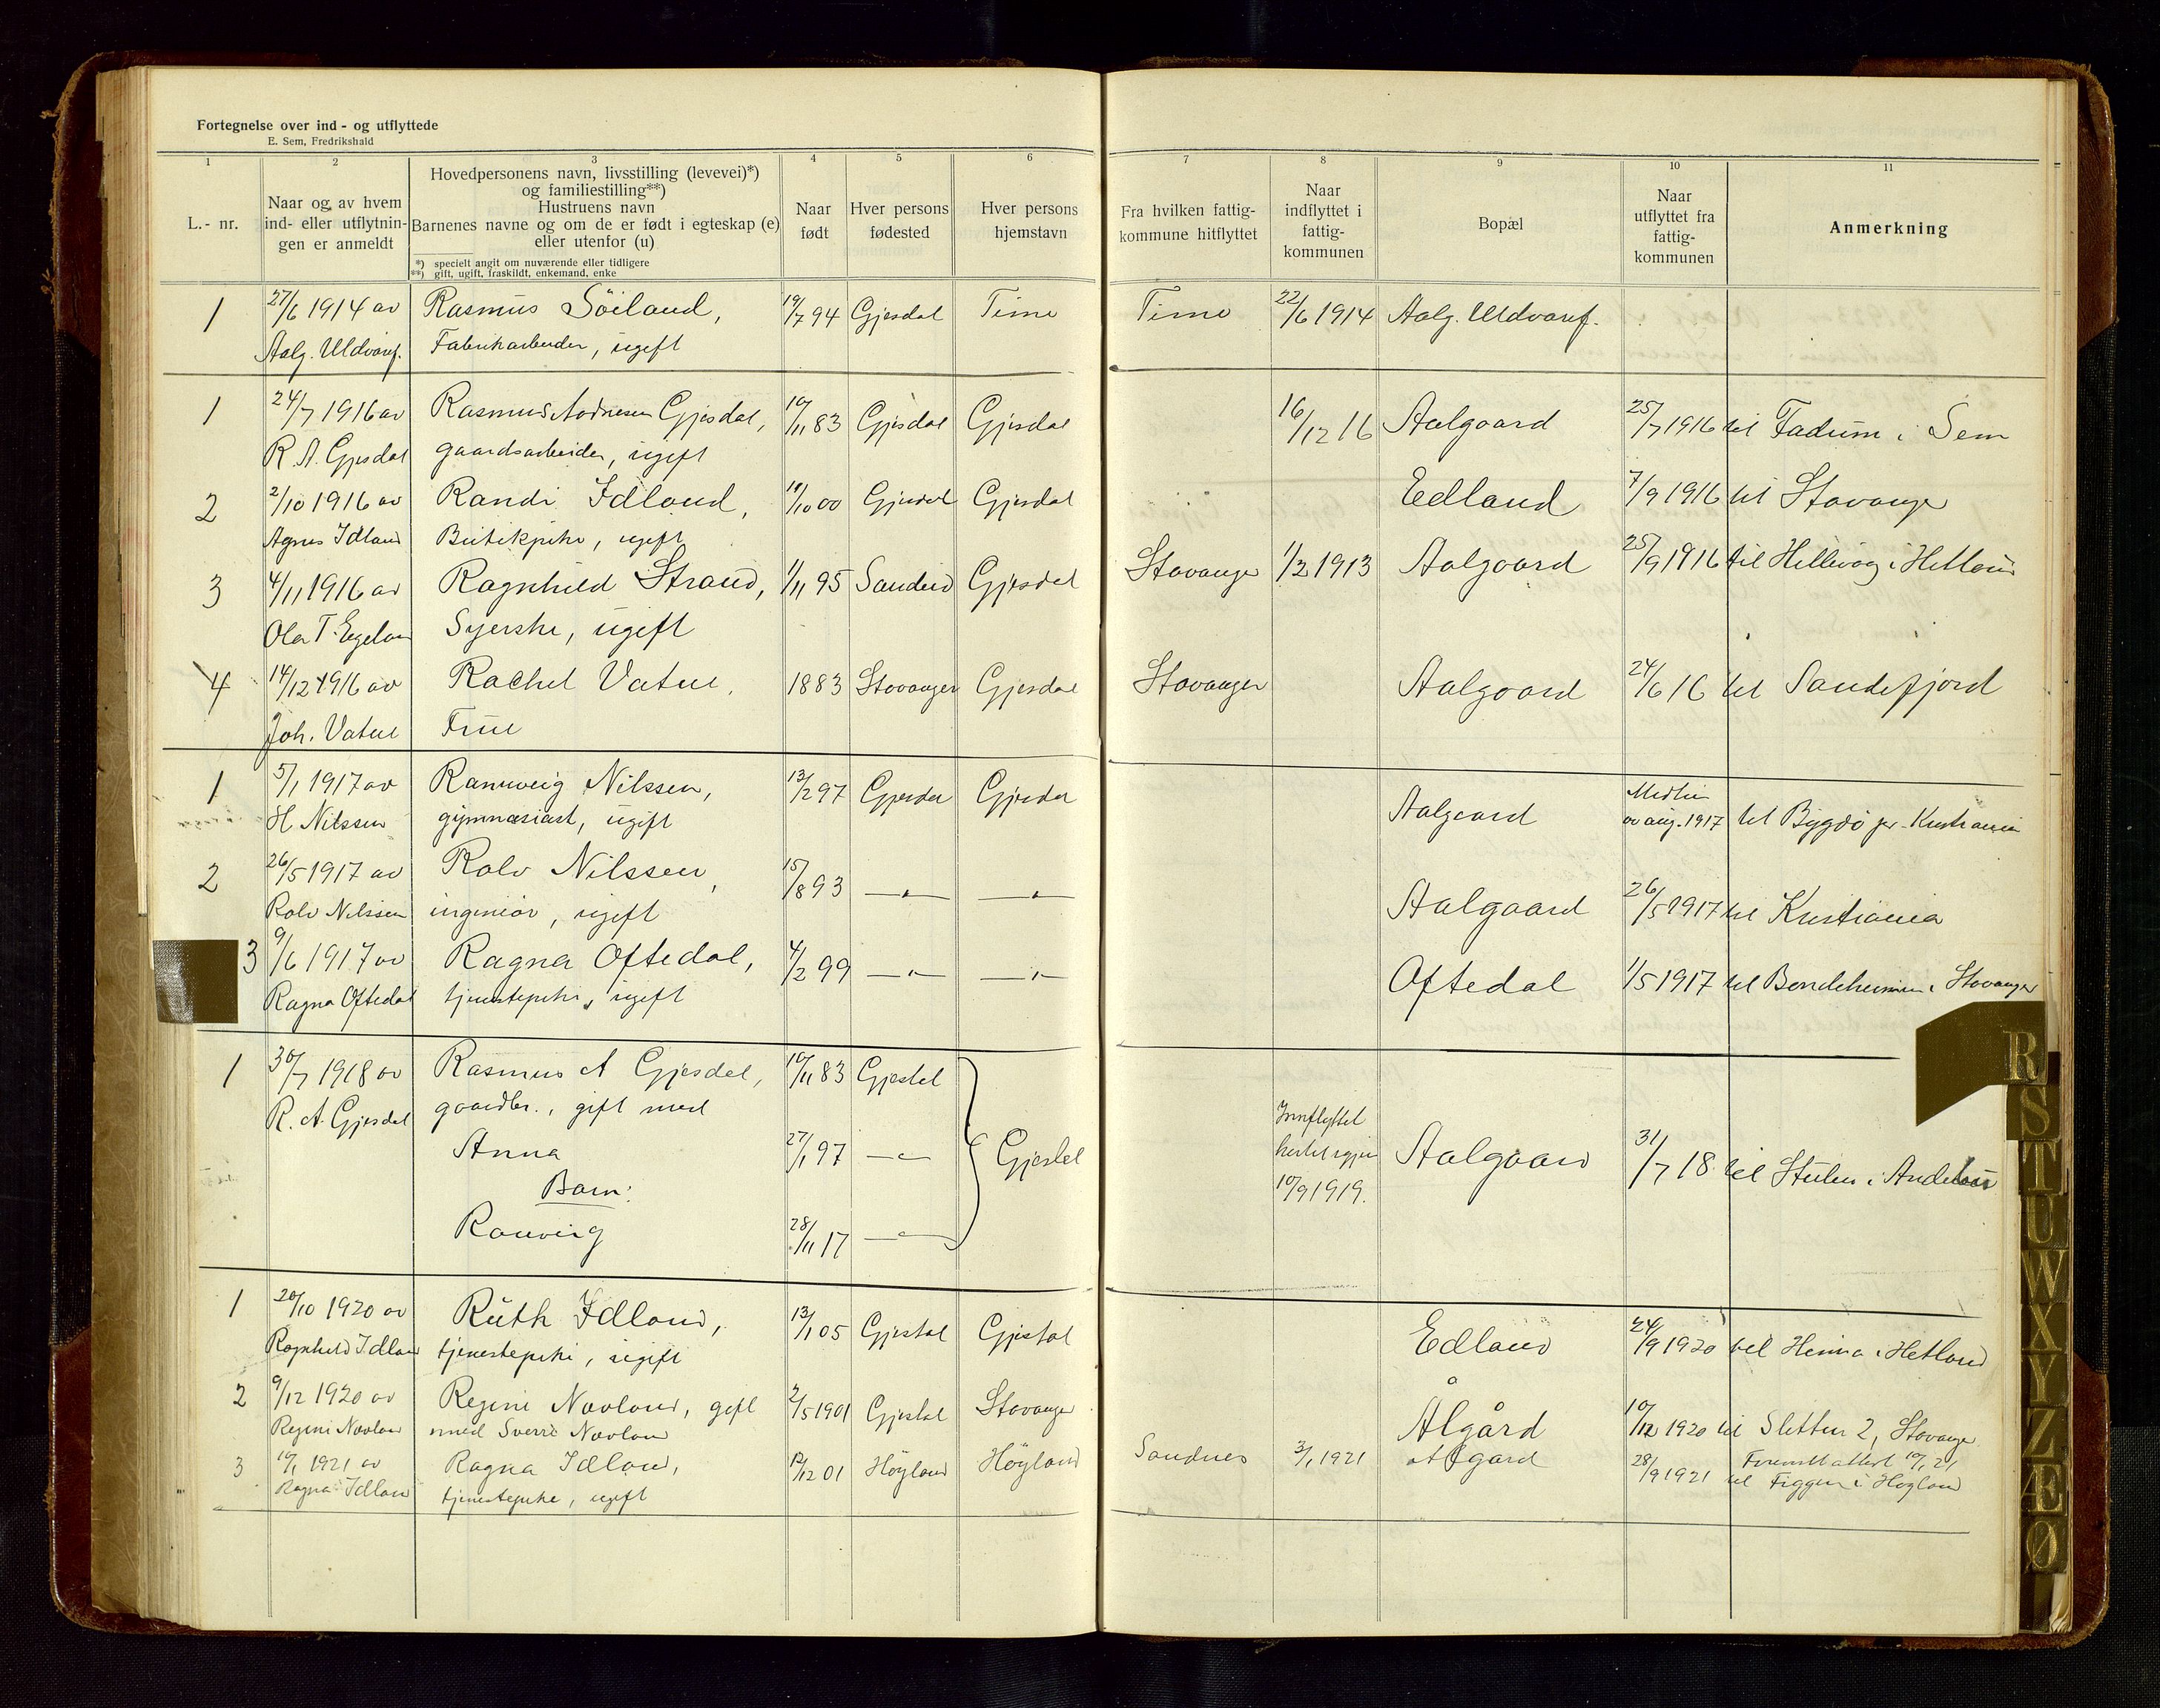 Fortegnelse over ind- og utflyttede
E. Sem, Fredrikshald
1 2 3 4 5 6 7 8 9 10 11
L.- nr.
Naar og av hvem
ind- eller utflytnin-
gen er anmeldt
Hovedpersonens navn, livsstilling (levevei)*)
og familiestilling**)
Hustruens navn
Barnenes navne og om de er født i egteskap (e)
eller utenfor (u)
*) specielt angit om nuværende eller tidligere
**) gift, ugift, fraskildt, enkemand, enke
Naar
født
Hver persons
fødested
Hver persons
hjemstavn
Fra hvilken fattig-
kommune hitflyttet
Naar
indflyttet i
fattig-
kommunen
Bopæl
Naar
utflyttet fra
fattig-
kommunen
Anmerkning
1 27/6 1914 av Rasmus Söiland, 19/7 94 Gjesdal Time Time 22/6 1914 Aalg. Uldvaref.
Aalg. Uldvaref. Fabrikarbeider, ugift
1 24/7 1916 av Rasmus Andresen Gjesdal, 10/11 83 Gjesdal Gjesdal 16/12 16 Aalgaard 25/7 1916 til Fadum i Sem
R. A. Gjesdal gaardsarbeider, ugift
2 2/10 1916 av Randi Idland, 19/10 00 Gjesdal Gjesdal Edland 7/9 1916 til Stavanger
Agnes Idland Butikpike, ugift
3 4/11 1916 av Ragnhild Strand, 1/11 95 Sandeid Gjesdal Stavanger 1/2 1913 Aalgaard 25/9 1916 til Hillevåg i Hetland
Ola T. Egeland Syerske, ugift
4 14/12 1916 av Rachel Vatne, 1883 Stavanger Gjesdal Stavanger Aalgaard 24/6 16 til Sandefjord
Joh. Vatne Frue
1 5/1 1917 av Rannveig Nilssen, 13/2 97 Gjesdal Gjesdal Aalgaard av aug. 1917 til Bygdö pr. Kristiania
H Nilssen gymnasiast, ugift
2 26/5 1917 av Rolv Nilssen, 15/8 93 —"— —"— Aalgaard 26/5 1917 til Kristiania
Rolv Nilssen ingeniör, ugift
3 9/6 1917 av Ragna Oftedal, 4/2 99 —"— —"— Oftedal 1/5 1917 til Bondeheimen i Stavanger
Ragna Oftedal tjenestepike, ugift
1 30/7 1918 av Rasmus A Gjesdal, 10/11 83 Gjesdal
R. A. Gjesdal gaardbr., gift med
Anna 27/1 97 —"— Gjesdal Innflyttet 10/9 1919. Aalgaard 31/7 18 til
Barn:
Ranveig 28/11 17 —"—
1 20/10 1920 av Ruth Idland, 13/1 05 Gjesdal Gjesdal Edland 24/9 1920 til Hinna i Hetland
Ragnhild Idland tjenestepike, ugift
2 9/12 1920 av Regine Navland, gift 2/5 1901 Gjesdal Stavanger Ålgård 10/12 1920 til Sletten 2, Stavanger
Regine Navland med Sverre Navland
3 10/1 1921 av Ragna Idland, 12/12 01 Höyland Höyland Sandnes 3/1 1921 Algård 28/9 1921 til Figgen i Höyland
Ragna Idland tjenestepike, ugift
R
S
T
U
W
X
Y
Z
Æ
Ø